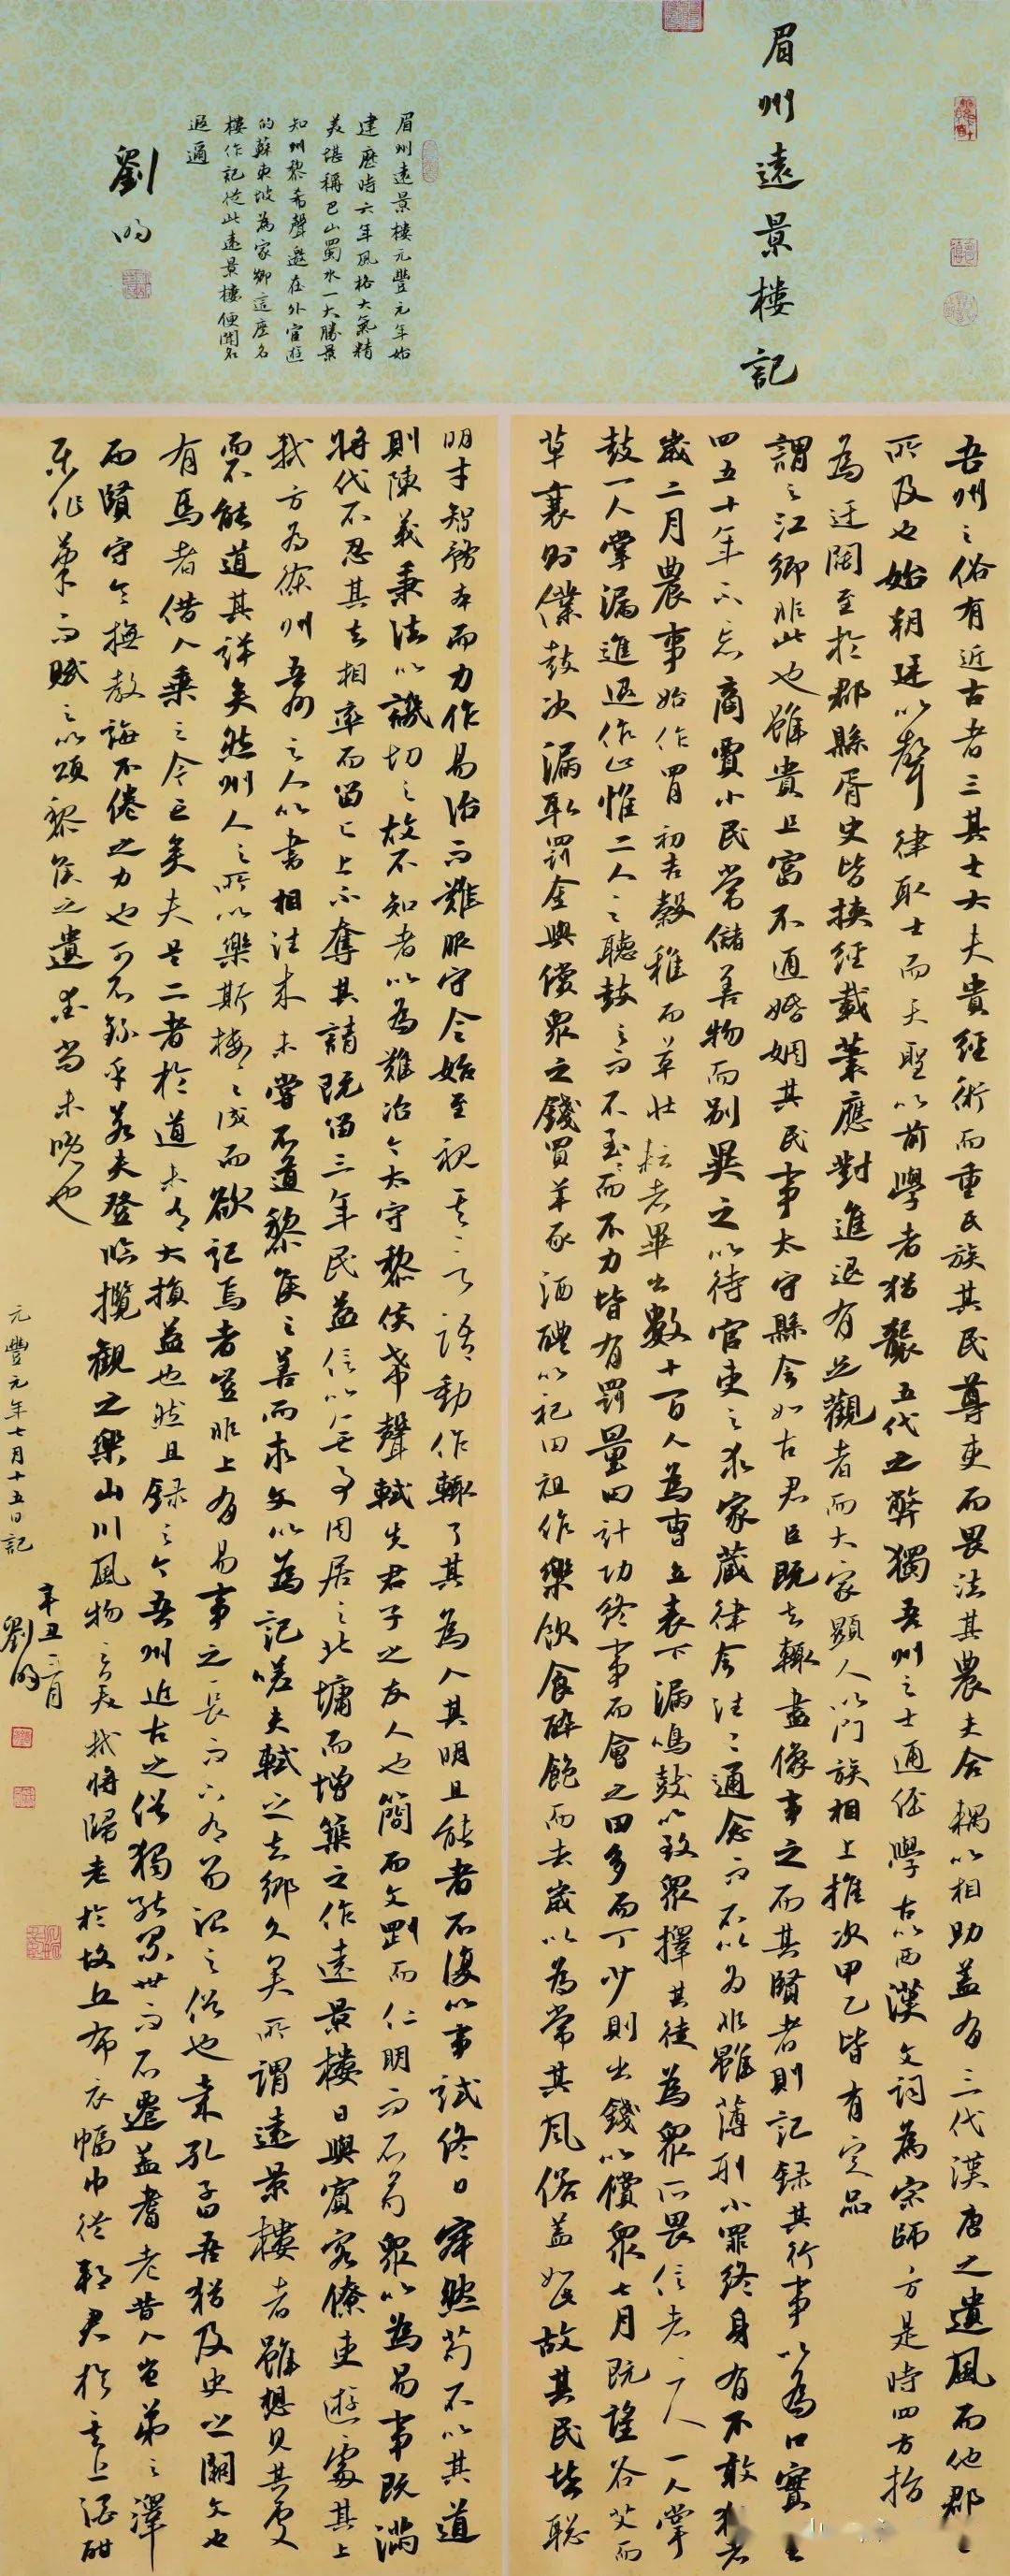 眉州遠景樓記
眉州遠景樓元豐元年始
建歷時六年風格大氣精
美堪稱巴山蜀水一大勝景
知州黎希聲邀在外宦遊
的蘇東坡為家鄉這座名
樓作記從此遠景樓便聞名
遐邇
劉
吾州之俗有近古者三其士大夫貴經術而重氏族其民尊吏而畏法其農夫合耦以相助蓋有三代漢唐之遺風而他郡之
所及也始朝廷以聲律取士而天聖以前學者猶襲五代之弊獨吾州之士通經學古以西漢文詞為宗師方是時四方指
為迂闊至於郡縣胥史皆挾經載筆應對進退有足觀者而大家顯人以門族相上推次甲乙皆有定品
謂之江鄉非此也雖貴且富不通婚姻其民事太守縣令如古君臣既去輒畫像事之而其賢者則記錄其行事以為口實至
四五十年不忘商賈小民常儲善物而別異之以待官吏之求家藏律令往往通念而不以為非雖薄刑小罪終身有不敢犯者
歲二月農事始作四月初吉穀稚而草壯耘者畢出數十百人為曹立表下漏鳴鼓以致眾擇其徒為眾所畏信者二人一人掌
鼓一人掌漏進退作止惟二人之聽鼓之而不至至而不力皆有罰量田計功終事而會之田多而丁少則出錢以償眾七月既望谷艾而
草衰則仆鼓決漏取罰金與償眾之錢買羊豕酒醴以祀田祖作樂飲食醉飽而去歲以為常其風俗蓋如此故其民皆聰
明才智務本而力作易治而難服守令始至視其言語動作輒了其為人其明且能者不復以事試終日寂然苟不以其道
則陳義秉法以譏切之故不知者以為難治今太守黎侯希聲軾先君子之友人也簡而文剛而仁明而不苟眾以為易事既滿
將代不忍其去相率而留之上不奪其請既留三年民益信以無事因居之北墉而增築之作遠景樓日與賓客僚吏遊處其上
軾方為徐州吾州之人以書相往來未嘗不道黎侯之善而求文以為記嗟夫軾之去鄉久矣所謂遠景樓者雖想見其處
而不能道其詳矣然州人之所以樂斯樓之成而欲記焉者豈非上有易事之長而下有易治之俗也哉孔子曰吾猶及史之闕文也
有馬者借人乘之今亡矣夫是二者於道未有大損益也然且錄之今吾州近古之俗獨能累世而不遷蓋耆老昔人豈弟之澤
而賢守令撫教誨不倦之力也可不錄乎若夫登臨攬觀之樂山川風物之美軾將歸老於故丘布衣幅巾從邦君於其上酒酣
樂作筆而賦之以頌黎侯之遺愛尚未晚也
元豐元年七月十五日記
辛丑二月
劉